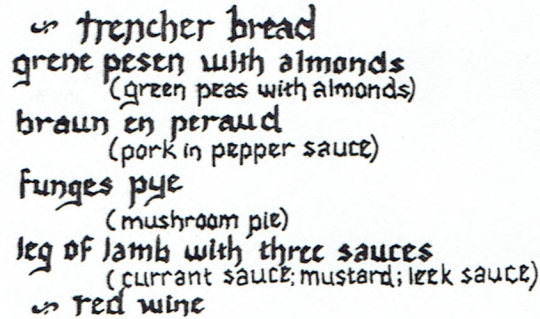 trencher bread
grene pesen with almonds
(green peas with almonds)
braun en peraud
(pork in pepper sauce)
funges pye
(mushroom pie)
leg of lamb with three sauces
(currant sauce; mustard; leek sauce)
red wine